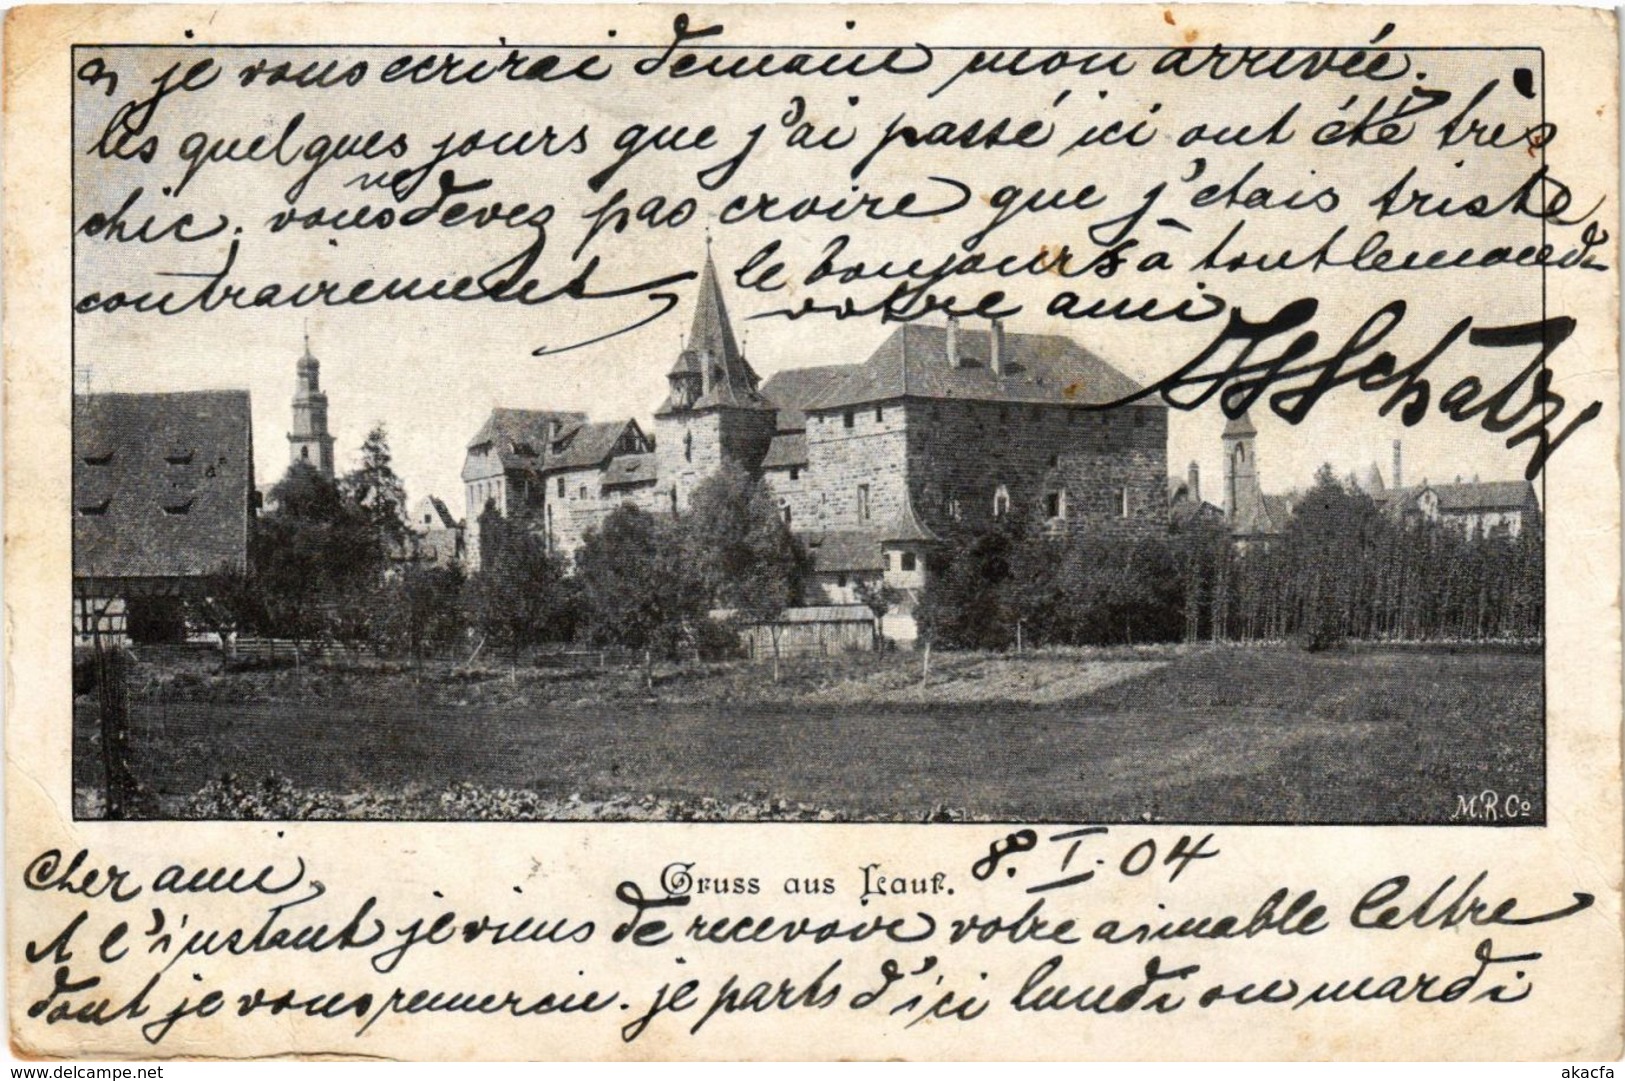 Gruss aus Lauf.
8. I. 04
Cher ami,
A l'instant je viens de recevoir votre aimable lettre
dont je vous remercie. je parts d'ici lundi ou mardi
je vous ecrirai demain mon arrivée.
les quelques jours que j'ai passé ici ont été très
chic. vous ne devez pas croire que j'etais triste
contrairement, le bonjours à tout le monde
votre ami
Schatz
M.R.Co
www.delcampe.net
akacfa